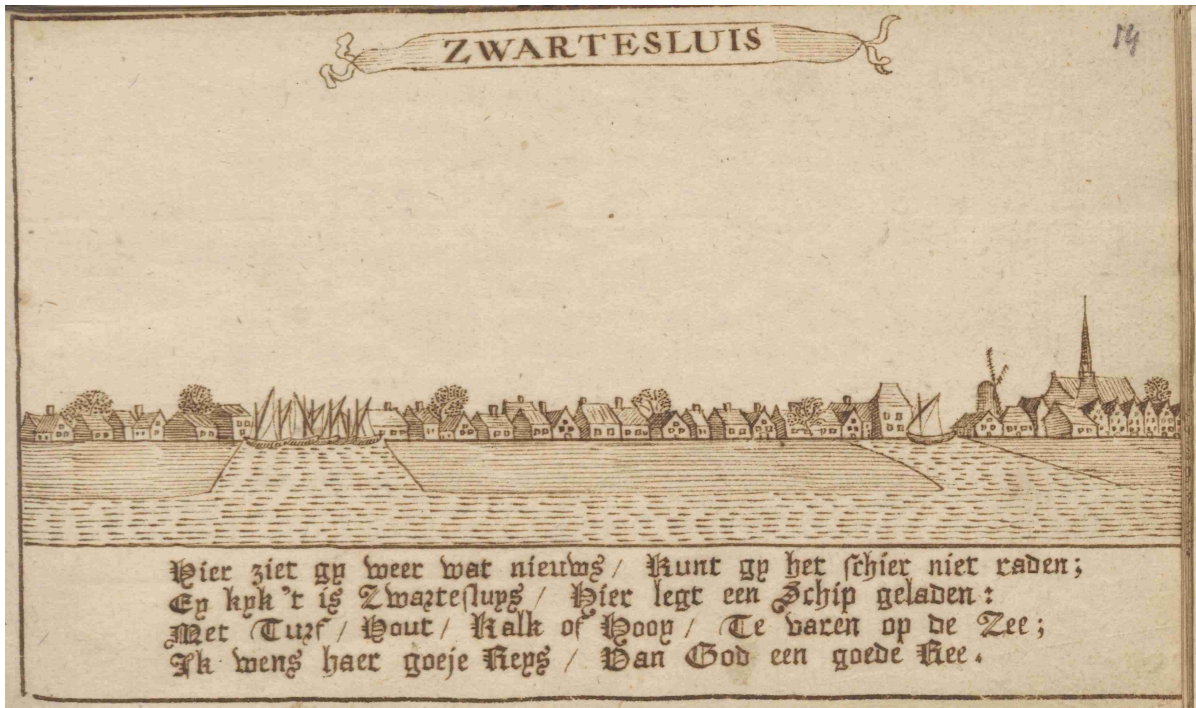 ZWARTESLUIS
14
Hier ziet gy weer wat nieuws / Kunt gy het schier niet raden;
Ey kyk't is Zwartesluys / Hier legt een Schip geladen:
Met Turf / Hout / Kalk of Hooy / Te varen op de Zee;
Ik wens haer goeje Reys / Van God een goede Ree.